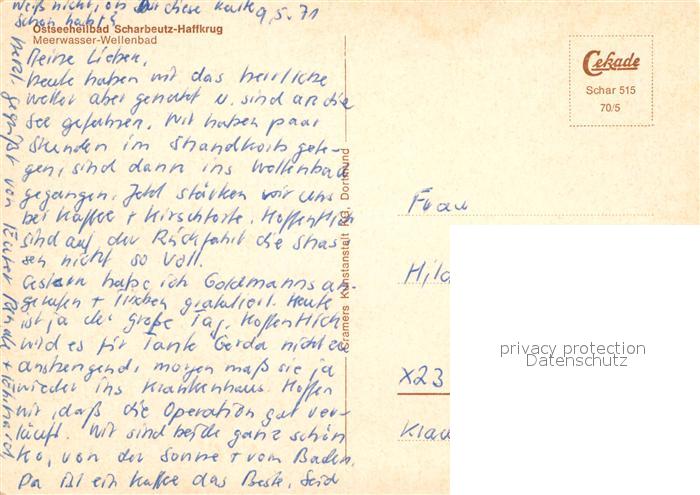 weiß nicht, ob Ihr diese Karte
schon habt? 9.5.71
Ostseeheilbad Scharbeutz-Haffkrug
Meerwasser-Wellenbad
Meine Lieben,
heute haben wir das herrliche
Wetter aber genutzt u. sind an die
See gefahren. Wir haben paar
Stunden im Strandkorb gele-
gen, sind dann ins Wellenbad
gegangen. Jetzt stärken wir uns
bei Kaffee + Kirschtorte. Hoffentlich
sind auf der Rückfahrt die Stras-
sen nicht so voll.
Gestern habe ich Goldmanns an-
gerufen + gratuliert. Heute
ist ja der große Tag. Hoffentlich
wird es für Tante Gerda nicht zu
anstrengend, morgen muß sie ja
wieder ins Krankenhaus. Hoffen
wir, daß die Operation gut ver-
läuft. Wir sind beide ganz schön
k.o., von der Sonne + vom Baden.
Da ist ein Kaffee das Beste. Seid
herzl. gegrüßt von Eurer +
Cramers Kunstanstalt KG, Dortmund
Cekade
Schar 515
70/5
Frau
Hild
X23
Klad
privacy protection
Datenschutz